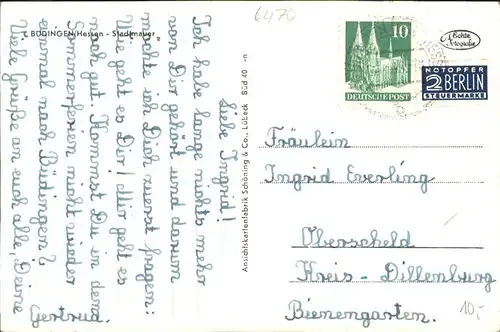 6470
BÜDINGEN/Hessen - Stadtmauer
Liebe Ingrid!
Ich habe lange nichts mehr
von Dir gehört und darum
möchte ich Dich zuerst fragen:
Wie geht es Dir? Mir geht es
noch gut. Kommst Du in den
Sommerferien nicht wieder
einmal nach Büdingen?
Viele Grüße an euch alle, Deine
Gertrud.
Ansichtskartenfabrik Schöning & Co., Lübeck Büd 40 -n
10
DEUTSCHE POST
Echte
Fotografie
NOTOPFER
2 BERLIN
STEUERMARKE
Fräulein
Ingrid Everling
Oberscheld
Kreis - Dillenburg
Bienengarten.
10,-